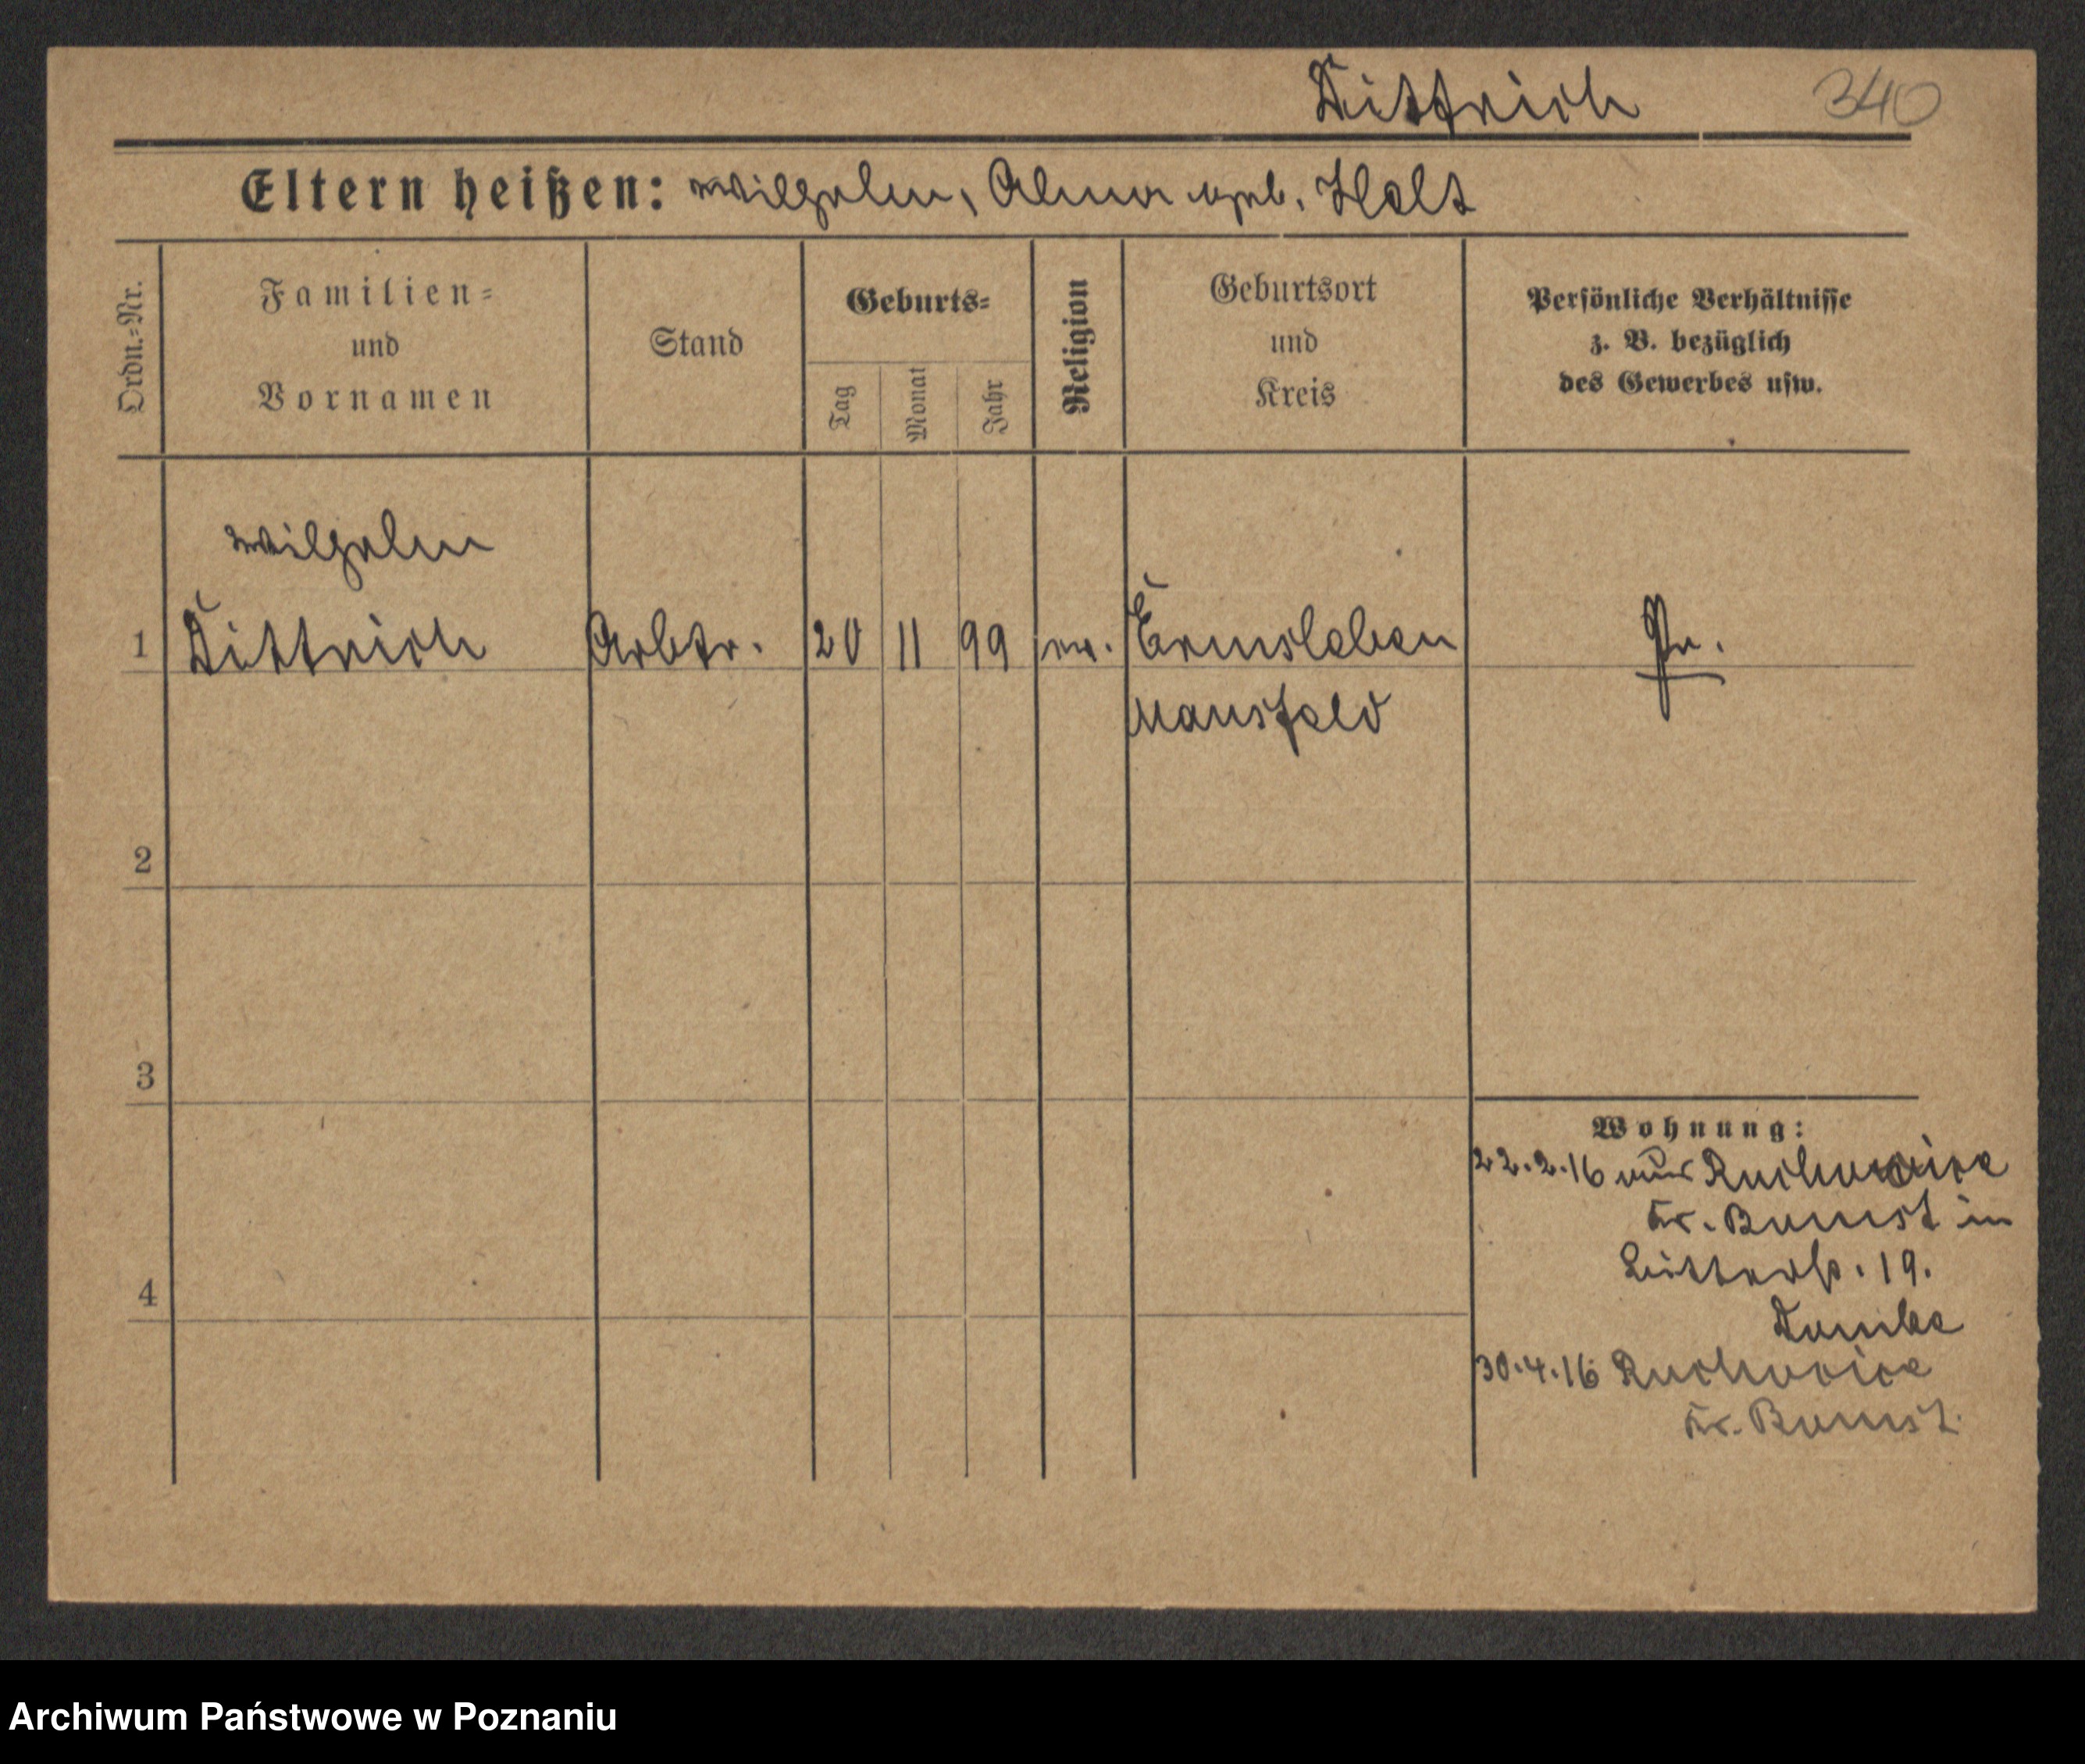 Dittrich 340
Eltern heißen: Wilhelm, Alma geb. Holt
Ordn.-Nr.
Familien-
und
Vornamen
Stand
Geburts-
Tag
Monat
Jahr
Religion
Geburtsort
und
Kreis
Persönliche Verhältnisse
z. B. bezüglich
des Gewerbes usw.
Wilhelm
1 Dittrich Arbtr. 20 11 99 ev. Ermsleben Pr.
Mansfeld
2
3
Wohnung:
22.2.16 aus Ruchocice
Kr. Bomst in
19.
4
30.4.16 Ruchocice
Kr. Bomst.
Archiwum Państwowe w Poznaniu